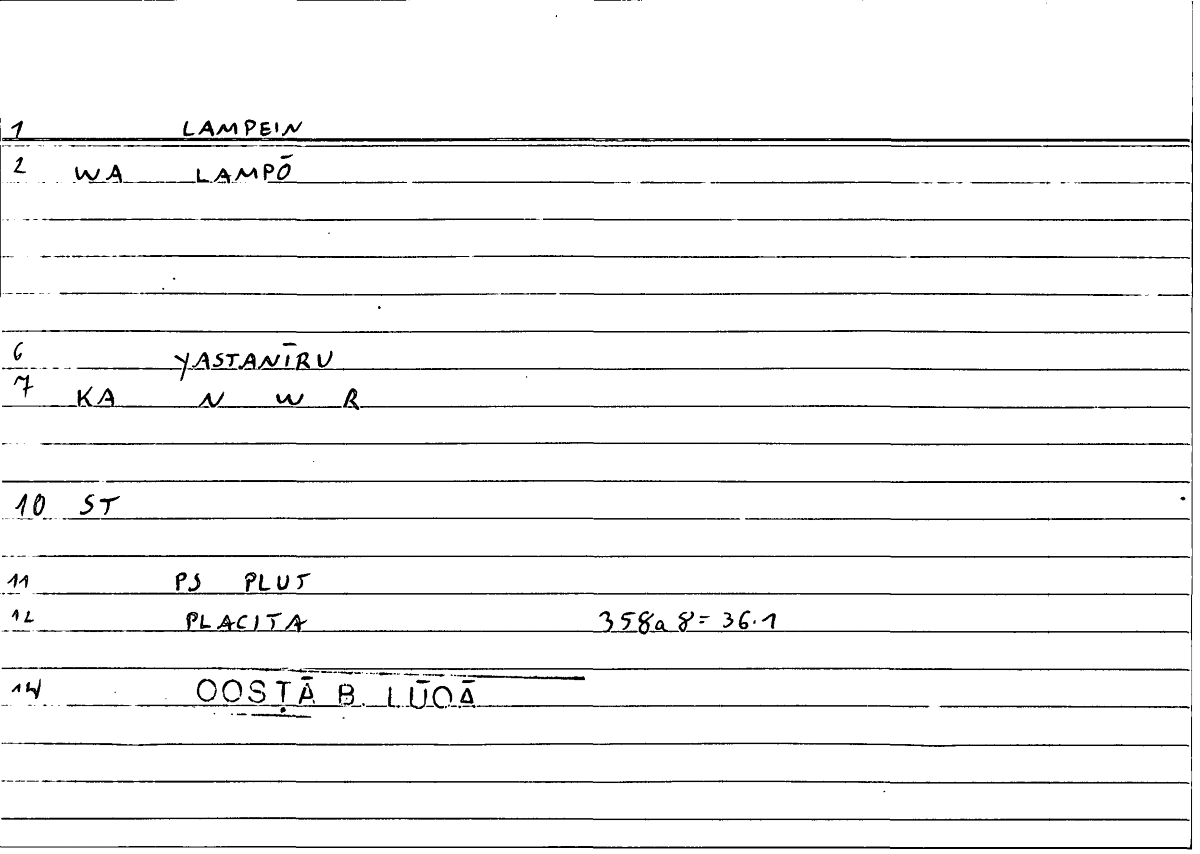 1 LAMPEIN
2 WA LAMPŌ
6 YASTANĪRU
7 KA N W R
10 ST
11 PS PLUT
12 PLACITA 358a8=36.1
14 OOSṬĀ B. LŪOĀ